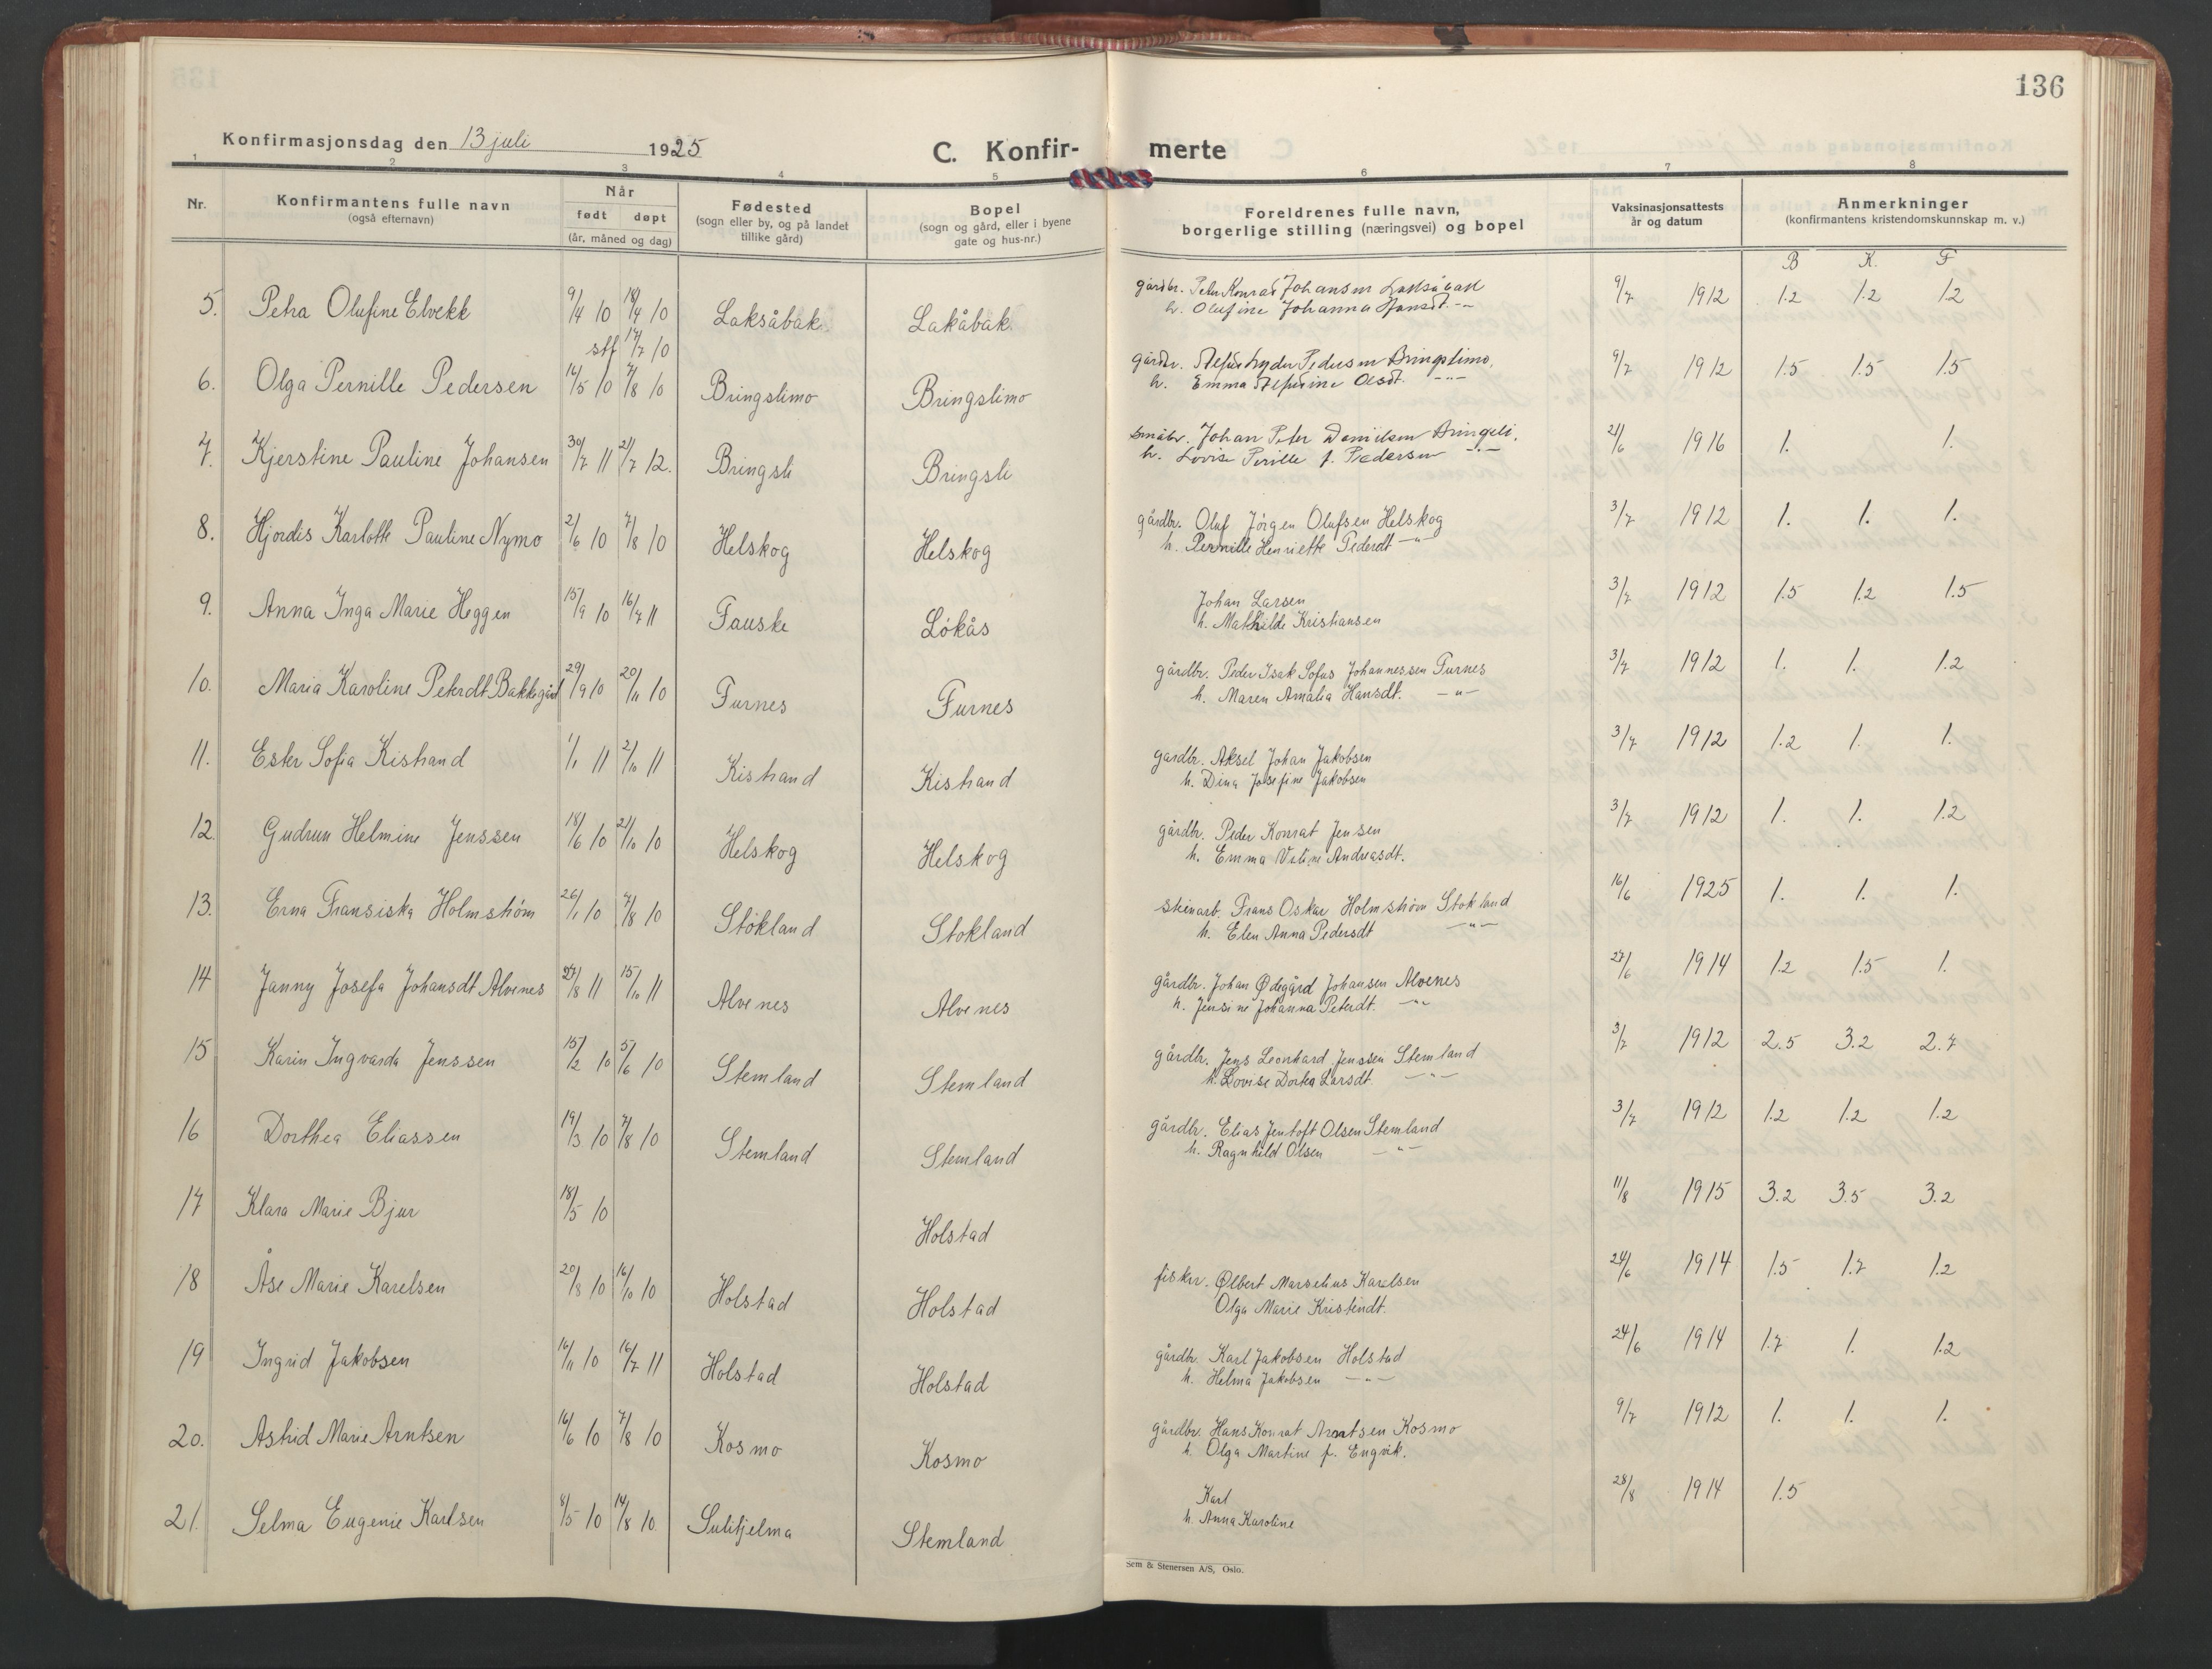 136
Konfirmasjonsdag den 13 juli 1925 C. Konfir- merte
1 2 3 4 5 6 7 8
Nr. Konfirmantens fulle navn (også efternavn) Når født døpt (år, måned og dag) Fødested (sogn eller by, og på landet tillike gård) Bopel (sogn og gård, eller i byene gate og hus-nr.) Foreldrenes fulle navn, borgerlige stilling (næringsvei) og bopel Vaksinasjonsattests år og datum Anmerkninger (konfirmantens kristendomskunnskap m. v.)
B K. F
5. Petra Olufine Elvekk 9/4 10 18/4 10 Laksåbak Lakåbak gårdbr. Peter Konrad Johansen Laksåbak 9/7 1912 1.2 1.2 1.2
h. Olufine Johanna Hansdt. -"-
stf 17/7 10
6. Olga Pernille Pedersen 16/5 10 7/8 10 Bringslimo Bringslimo gårdbr. Pedersen Bringslimo, 9/7 1912 1.5 1.5 1.5
h. Emma Olsdt. -"-
7. Kjerstine Pauline Johansen 30/7 11 21/7 12. Bringsli Bringsli småbr. Johan Peter Danielsen Bringsli. 21/6 1916 1. 1.
h. Lovise Perille f. Pedersen -"-
8. Hjordis Karlotte Pauline Nymo 2/6 10 7/8 10 Helskog Helskog gårdbr. Oluf Jörgen Olufsen Helskog 3/7 1912 1. 1. 1.
h. Pernille Henriette Pedersdt -"-
9. Anna Inga Marie Heggen 15/9 10 16/7 11 Fauske Lökås Johan Larsen 3/7 1912 1.5 1.2 1.5
h. Mathilde Kristiansen
10. Maria Karoline Petersdt Bakkegård 29/9 10 20/11 10 Furnes Furnes gårdbr. Peder Isak Sofus Johannessen Furnes 3/7 1912 1. 1. 1.2
h. Maren Amalia Hansdt. -"-
11. Ester Sofia Kistrand 1/1 11 2/10 11 Kistrand Kistrand gardbr. Aksel Johan Jakobsen 3/7 1912 1.2 1. 1.
h. Dina Josefine Jakobsen
12. Gudrun Helmine Jenssen 18/6 10 21/10 10 Helskog Helskog gårdbr. Peder Konrat Jensen 3/7 1912 1. 1. 1.2
h. Emma Andreasdt.
13. Erna Fransiska Holmström 26/1 10 7/8 10 Stokland Stokland steinarb. Frans Oskar Holmström Stokland 16/6 1925 1. 1. 1.
h. Elen Anna Pedersdt -"-
14 Janny Josefa Johansdt Alvenes 27/8 11 15/10 11 Alvenes Alvenes gårdbr. Johan Ødegård Johansen Alvenes 27/6 1914 1.2 1.5 1.
h. Jensine Johanna Petersdt. -"-
15 Karin Ingvarda Jenssen 15/2 10 5/6 10 Stemland Stemland gårdbr. Jens Leonhard Jenssen Stemland 3/7 1912 2.5 3.2 2.7
h. Lovise Dortea Larsdt. -"-
16 Dorthea Eliassen 19/3 10 7/8 10 Stemland Stemland gårdbr. Elias Jentoft Olsen Stemland 3/7 1912 1.2 1.2 1.2
h. Ragnhild Olsen -"-
17 Klara Marie Bjur 18/5 10 Holstad 11/8 1915 3.2 3.5 3.2
18 Åse Marie Karelsen 20/8 10 16/10 10 Holstad Holstad fisker. Ølbert Marselius Karelsen 24/6 1914 1.5 1.7 1.2
Olga Marie Kristendt.
19 Ingrid Jakobsen 16/11 10 16/7 11 Holstad Holstad gårdbr. Karl Jakobsen Holstad 24/6 1914 1.7 1. 1.2
h. Helma Jakobsen -"-
20. Astrid Marie Arntsen 16/6 10 7/8 10 Kosmo Kosmo gårdbr. Hans Konrat Arntsen Kosmo 9/7 1912 1. 1. 1.
h. Olga Martine f. Engvik.
21. Selma Eugenie Karlsen 8/5 10 14/8 10 Sulitjelma Stemland Karl 28/8 1914 1.5
h. Anna Karoline
Sem & Stenersen A/S, Oslo.